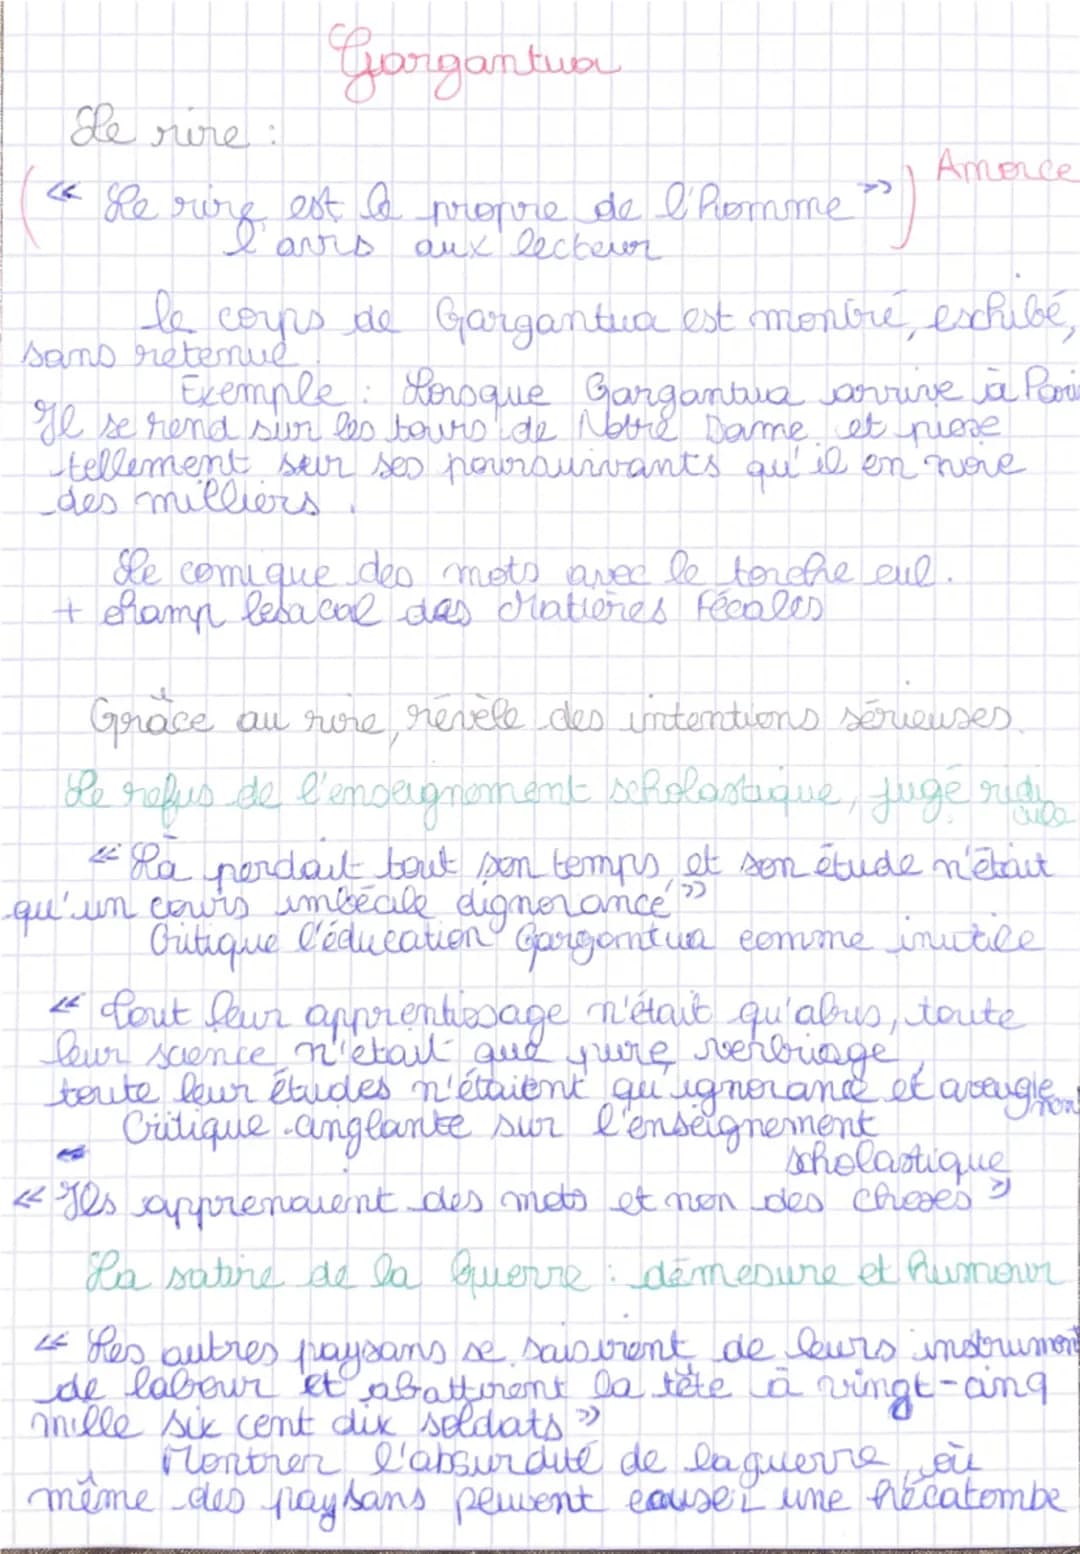 Gargantua
Le rire :
Amorce
( « Le rire est le propre de l'homme » )
l'avis aux lecteur
le corps de Gargantua est montré, exhibé,
sans retenue.
Exemple : Lorsque Gargantua arrive à Paris
Il se rend sur les tours de Notre Dame et pisse
tellement sur ses poursuivants qu'il en noie
des milliers.
Le comique des mots avec le torche cul.
+ champ lexical des Matières fécales
Grâce au rire, révèle des intentions sérieuses.
Le refus de l'enseignement scholastique, jugé ridi
cule
« Là perdait tout son temps et son étude n'était
qu'un cours imbécile dignorance »
Critique l'éducation Gargantua comme inutile
« tout leur apprentissage n'était qu'abus, toute
leur science n'etait que pure verbiage
toute leur études n'étaient qu'ignorance et aveugle
ment
Critique sanglante sur l'enseignement
scholastique
« Ils apprenaient des mots et non des choses »
La satire de la Guerre : démesure et humour
« Les autres paysans se saisirent de leurs instrument
de labour et abattirent la tête à vingt-cinq
mille six cent dix soldats »
Montrer l'absurdité de la guerre, où
même des paysans peuvent causer une hécatombe